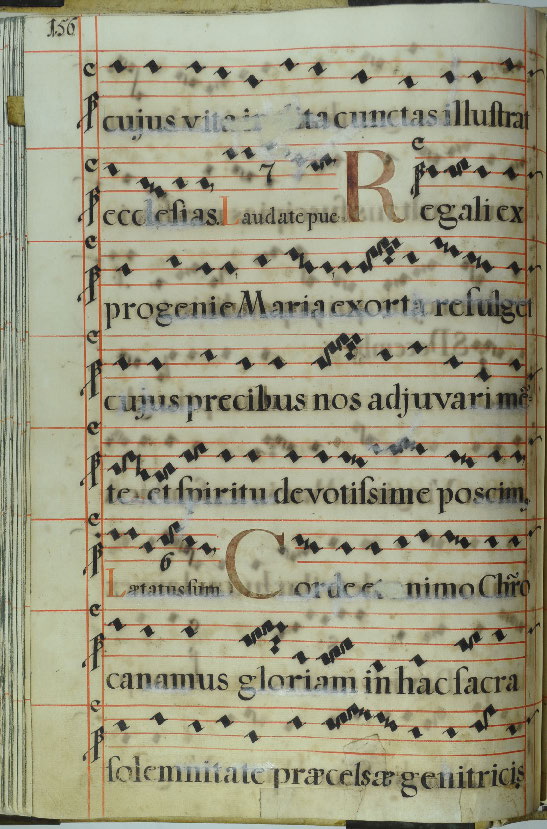 156
cujus vita inclita cunctas illustrat
7
ecclesias. Laudate pue Regali ex
progenie Maria exorta refulget
cujus precibus nos adjuvari mē
te, et spiritu devotissime poscim,
6
Lætatus sum Corde et animo Chr̃o
canamus gloriam in hac sacra
solemnitate præcelsæ genitricis